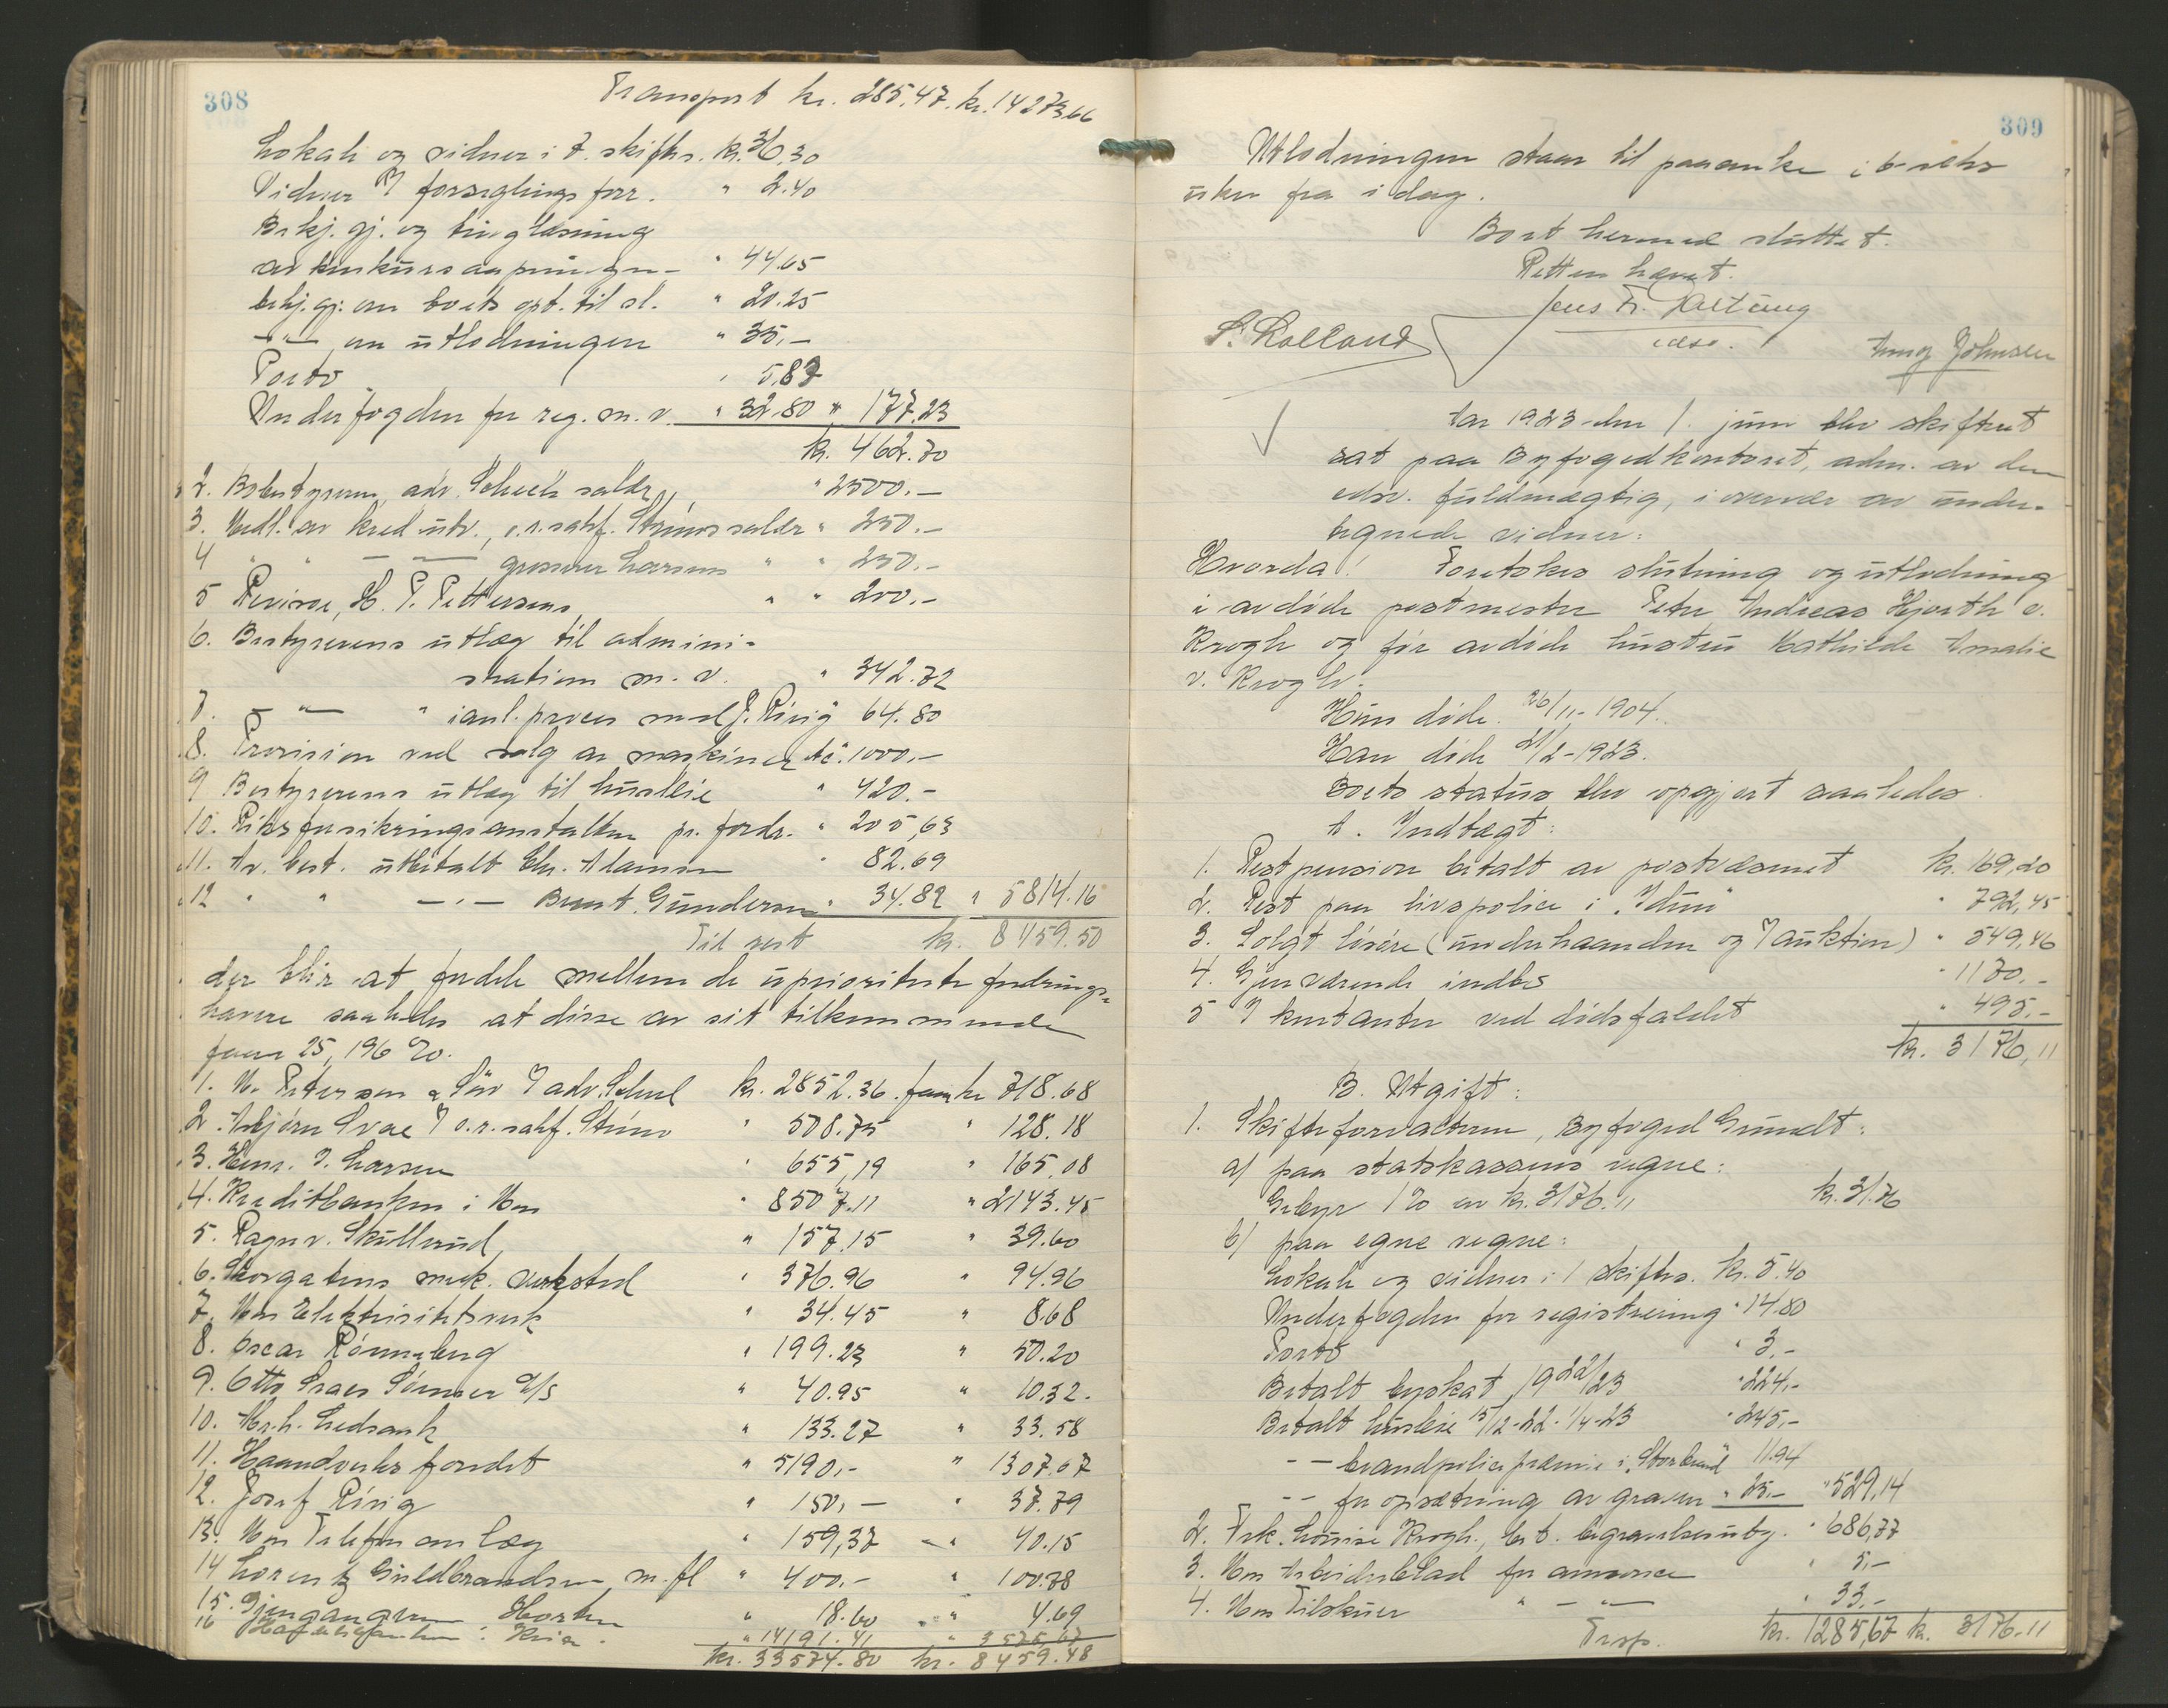 308
Transport kr. 285.47. kr. 14273.66
Lokale og vidner i 7. skiftes. kr. 36.30
Vidner I forseglings forr. " 2.40
Bekj. gj. og tinglæsning
av konkursaapningen - " 44.65
bekj. gj. om boets opt. til sl. " 20.25
—"— om utlodningen " 35.—
Porto " 5.83
Underfogden for reg. m. v. " 32.80 " 177.23
kr. 462.70
2. Bobestyreren, adv. Scheels salær " 2500.—
3. Medl. av kred. utv., o.r.sakf. Strøms salær " 250.—
4 " " — — grosserer Larsens " " 250.—
5 Revisor, H. P. Pettersens " " 200.—
6. Bestyrerens utlæg til admini-
stration m. v. " 342.72
7. —"— " i anl. proces med J. Rivig 64.80
8. Provision ved salg av maskiner etc. 1000.—
9 Bestyrerens utlæg til husleie " 420.—
10. Riksforsikringsanstalten pr. fordr. " 205,63
11. Av best. utbetalt Chr. Adamsen " 82.69
12 " " —"— Bernt Gundersen " 34.82 " 5814.16
Til rest kr. 8459.50
der blir at fordele mellem de upriorterte fordrings-
havere saaledes at disse av sit tilkommende
faar 25,196 %.
1. M. Peterson & Søn I adv. Scheel kr. 2852.36 faar kr 718.68
2. Asbjørn Svae I o.r.sakf. Strøm " 508.75 " 128.18
3. Henr. J. Larsen " 655,19 " 165.08
4. Kreditbanken i Mos " 8507.11 " 2143.45
5. Ragnv. Skullerud " 157.15 " 39.60
6. Storgatens mek. verksted " 376.96 " 94.96
7. Mos Elektrisitetsverk " 34.45 " 8.68
8. Oscar Rønneberg " 199.23 " 50.20
9. Otto Græs Sønner A/S " 40.95 " 10.32.
10. " 133.27 " 33.58
11. Haandverksfondet " 5190.— " 1307.67
12. Josef Rivig " 150.— " 37.79
13. Mos Telefonanlæg " 159,37 —" 40.15
14 Lorentz Guldbrandsen m. fl " 400.— " 100.78
15. Gjengangeren Horten " 18.60 " 4.69
16 " 14191.41 " 3575,67
kr. 33574.80 kr. 8459.48
309
Utlodningen staar til paaanke i 6 seks
uker fra idag.
Boet hermed sluttet.
Retten hævet.
Jens Fr. Heltung
edsv.
S. Rolland
Aug Johnsen
Aar 1923 den 1. juni blev skifteret
sat paa Byfogedkontoret, adm. av den
edsv. fuldmægtig, i overvær av under-
tegnede vidner:
Hvorda! Foretokes slutning og utlodning
i avdøde postmester Peter Andreas Hjorth v.
Krogh og før avdøde hustru Mathilde Amalie
v. Krogh.
Hun døde 26/11-1904.
Han døde 21/2-1923.
Boets status blev opgjort saaledes.
A. Indtægt:
1. Restpension betalt av postvæsenet kr. 169,20
2. Rest paa livspolice i "Idun" " 792,45
3. Solgt løsøre (underhaanden og I auktion) " 549,46
4. Gjenværende indbo " 1170.—
5 I kontanter ved dødsfaldet " 495.—
kr. 3176,11
B. Utgift:
1. Skifteforvalteren, Byfoged Grundt:
a) paa statskassens vegne:
Gebyr 1% av kr. 3176.11 kr. 31.76
b) paa egne vegne:
Lokale og vidner i 1 skiftes. kr. 5.40
Underfogden for registrering " 14.80
Porto " 3.—
Betalt byskat 1922/23 " 224.—
Betalt husleie 15/12-22 - 1/4-23 " 245.—
— — brandpolicepræmie i "Storebrand" 11.94
— — for opsætning av graven " 25.— " 529,14
2. Frk. Louise Krogh, bet. begravelsesutg. " 686,77
3. Mos Arbeiderblad for annonce " 5.—
4. Mos Tilskuer " — "— " 33.—
Trsp. kr. 1285,67 kr. 3176.11